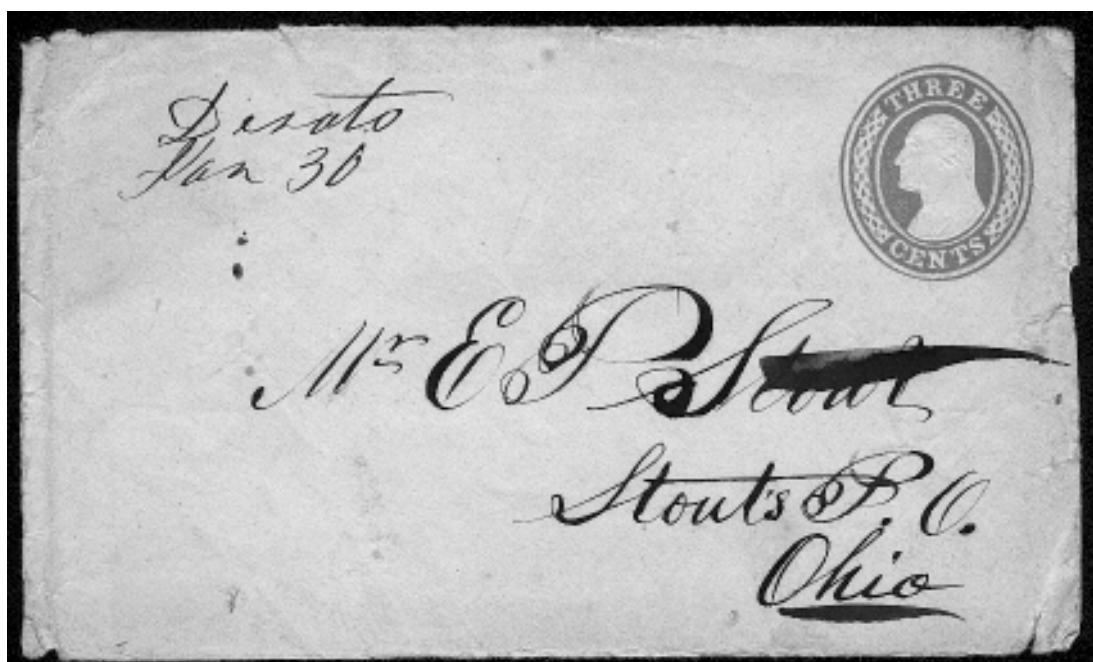 Desoto
Jan 30
THREE
CENTS
Mr E P Stout
Stout's P. O.
Ohio